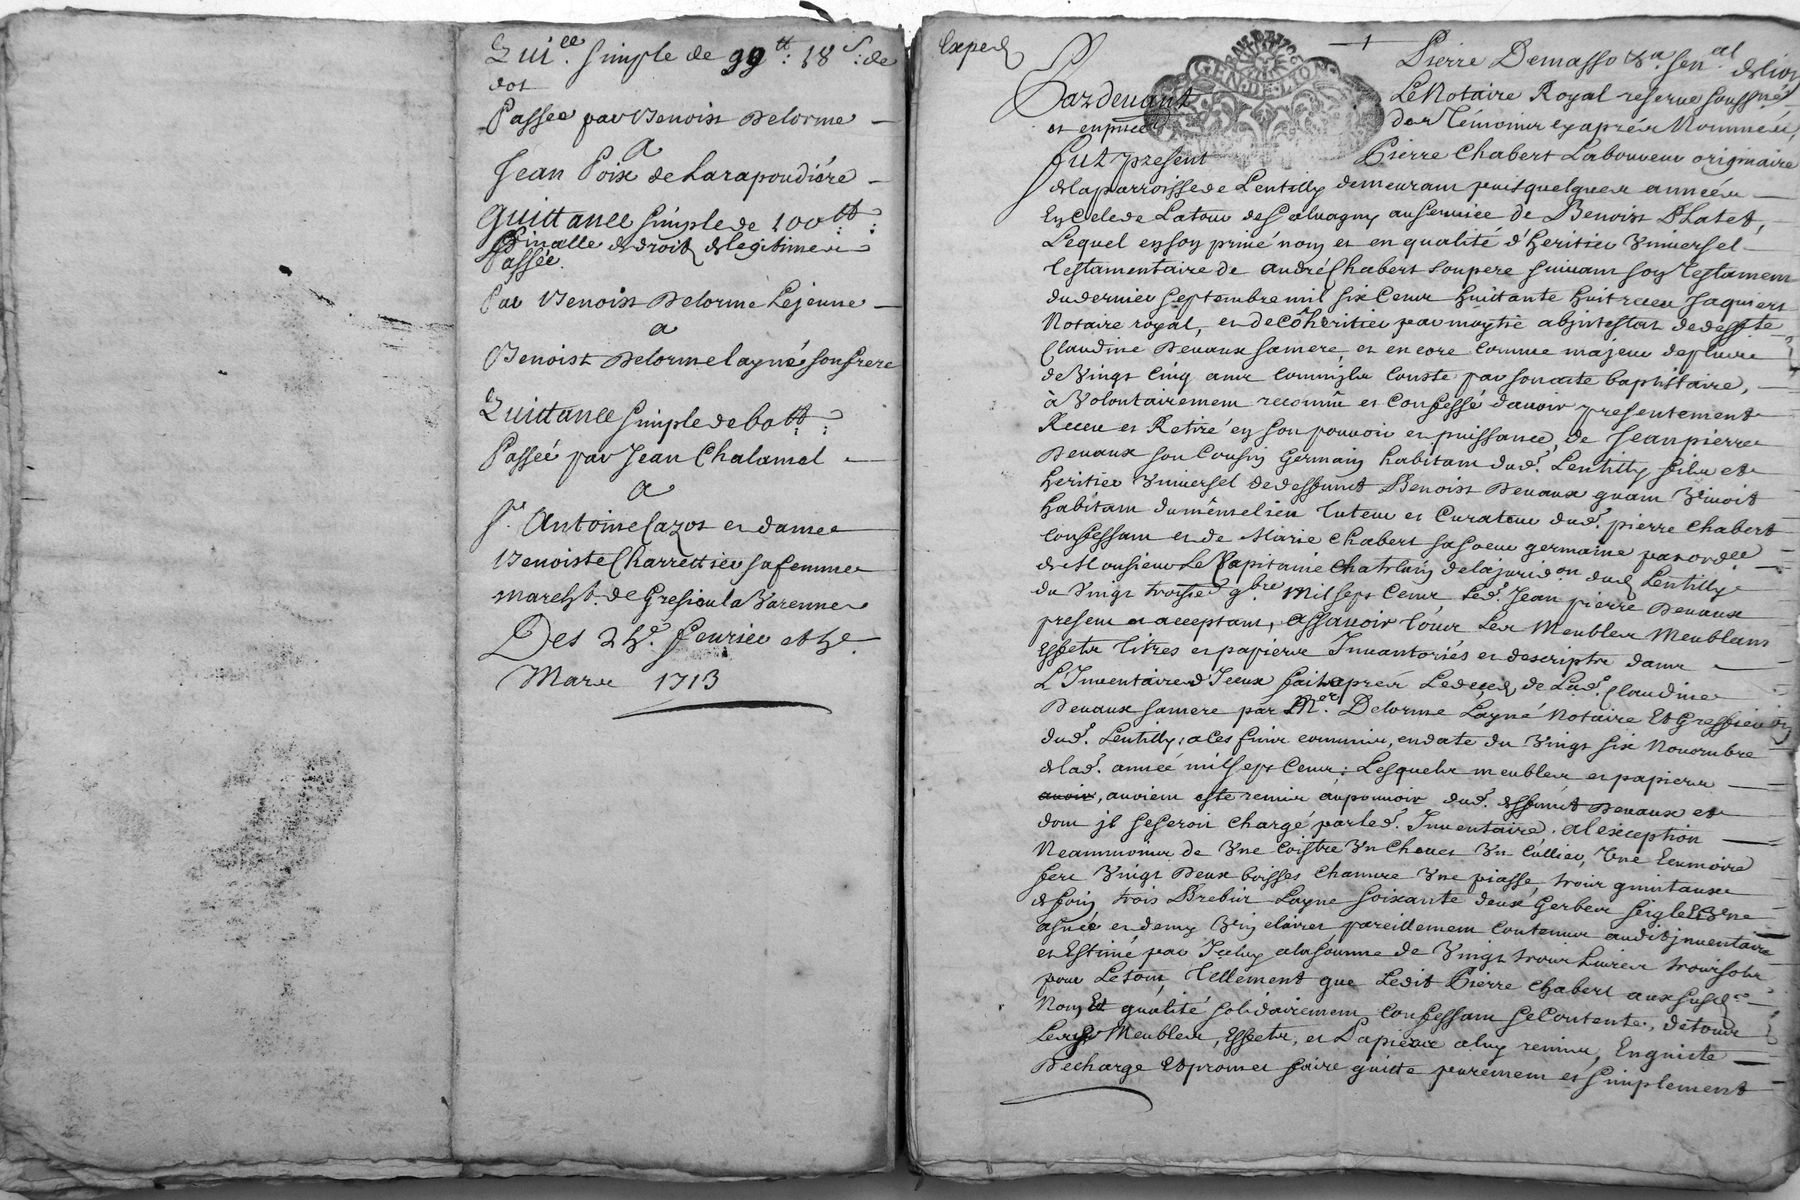 Quit.ce simple de 99tt: 18 s: de
dot
Passée par Benoist Delorme
a
Jean Poix de Larapoudière
Quittance simple de 100tt:
finalle de droits de legitime
Passée
Par Benoist Delorme Lejeune
a
Benoist Delorme layné son frere
Quittance simple de 60tt:
Passée par Jean Chalamel
a
Sr. Antoine Cazot et dame
Benoiste Charrettier sa femme
march.t de Gresieu la Varenne
Des 24e. fevrier et 4e.
Mars 1713
Exped
GEN. DE LYON
Pierre Demasso
Pardevant Le Notaire Royal reservé soussigné
et en pnce des Témoins cy aprés Nommés,
fut present Pierre Chabert Laboureur originaire
de la parroisse de Lentilly demeurant puis quelques années
en Celle de Latour de Salvagny au service de Benoist
Lequel en son privé nom et en qualité d'heritier Universel
testamentaire de André Chabert son pere suivant son testament
du dernier septembre mil six Cens huittante huit receu Jaquiers
Notaire royal, et de Cohéritier par moytié abjntestat de deffte
Claudine Devaux sa mere, et encore comme majeur de plus
de Vingt Cinq ans comm'il conste par son acte baptistaire,
à Volontairement reconnu et Confessé d'avoir presentement
Receu et Retiré en son pouvoir et puissance, de Jean pierre
Devaux son Cousin Germain habitant dud. Lentilly fils et
heritier Universel de deffunt Benoist Devaux quant Vivoit
habitant du même lieu tuteur et Curateur dud. pierre Chabert
confessant et de Marie Chabert sa soeur germaine par ord.ce
de Monsieur Le Capitaine Chatelain de la jurid.on dud. Lentilly
du Vingt troisie. 9bre mil sept Cens, Led. Jean pierre Devaux
present et acceptant, assavoir tous Les Meubles Meublans
Effets titres et papiers Inventoriés et descripts dans
L'Inventaire d'Iceux fait aprés Le deced de Lad. Claudine
Devaux sa mere par Me. Delorme Layné Notaire Et Greffier
dud. Lentilly, a ces fins commis, en date du Vingt six Novembre
de lad. année mil sept Cens: Lesquels meubles et papiers
avoir, auroient esté remis au pouvoir dud. deffunt Devaux et
dont jl se seroit chargé par led. Inventaire. a l'exception
Neammoins de Une Coistre Un Chevet Un Cullier, Une Ecumoire
fere Vingt Deux boisses Chanvre Une piasse, trois quintaux
de foin trois Brebis Layne soixante deux Gerbes seigle Et Une
asnée et demy Vin clairet pareillement Contenus audit jnventaire
et Estimé par Iceluy a la somme de Vingt trois Livres trois sols
pour Le tout, tellement que Ledit Pierre Chabert aux susd.
Nom Et qualité solidairement Confessant se Contente. de tous
Lesd. Meubles, Effets, et Papiers a luy remis, En quitte
Decharge Et promet faire quitte purement et simplement